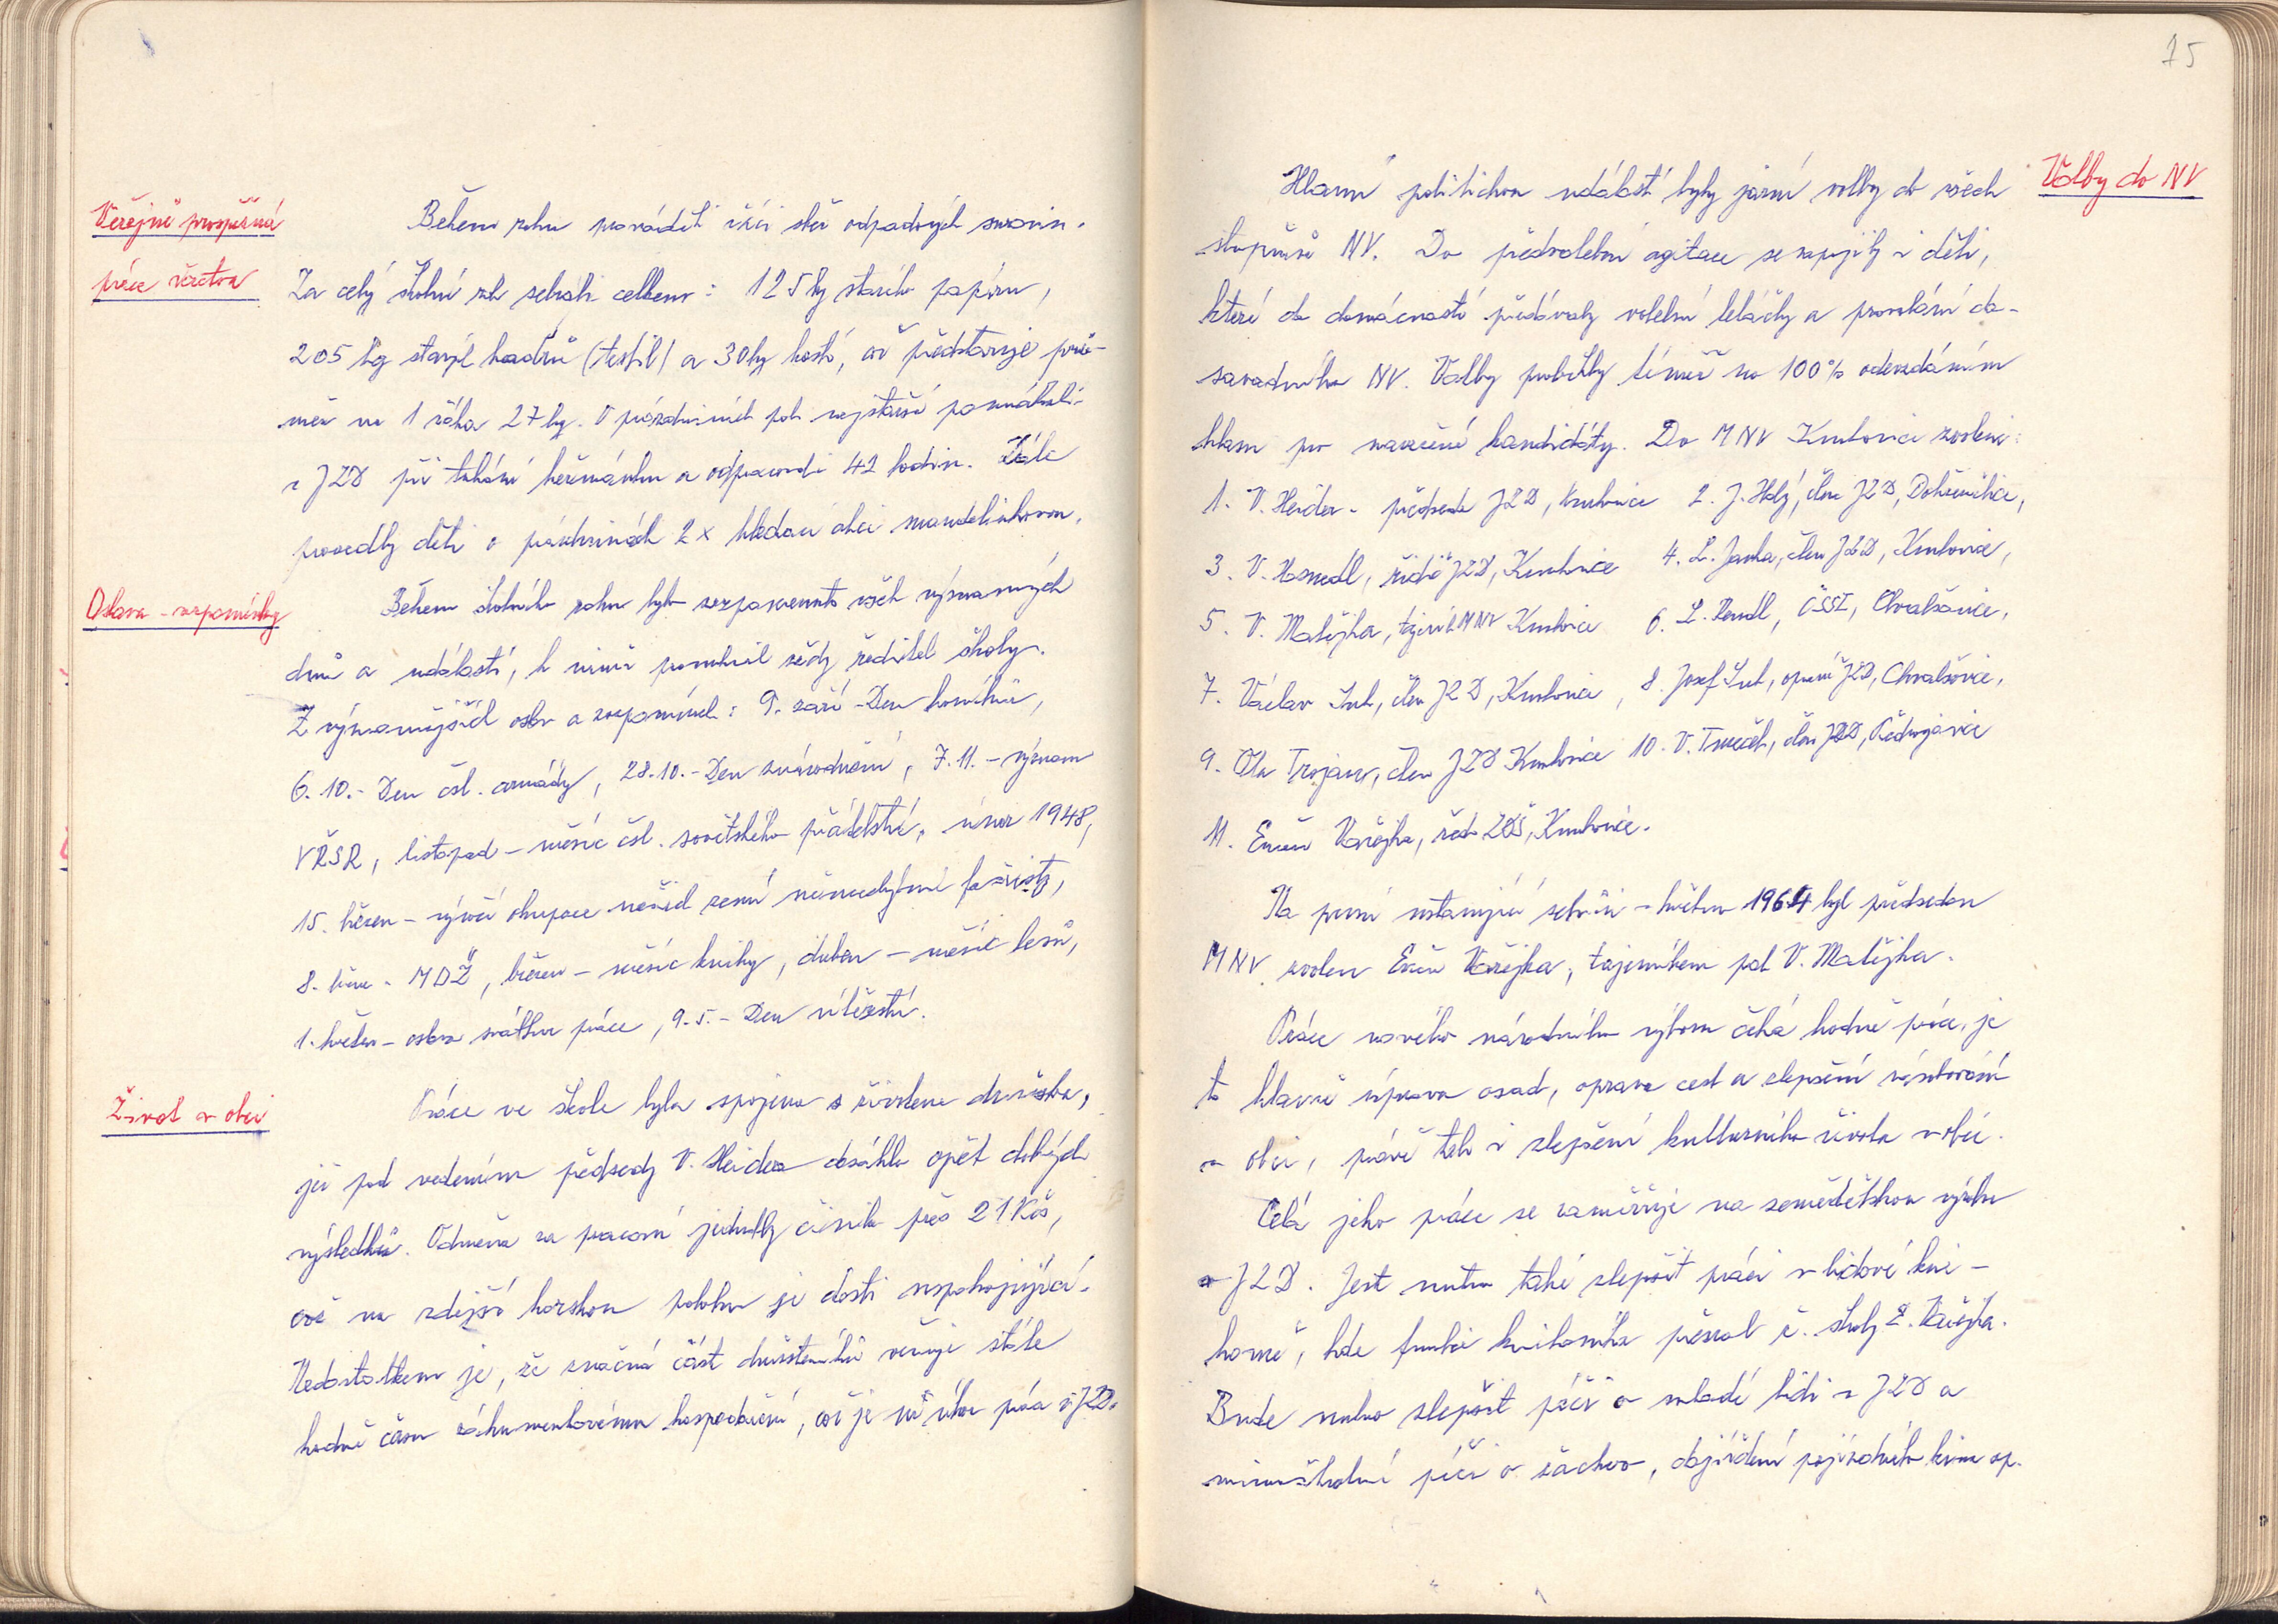 Veřejně prospěšná
práce žactva
Během roku prováděli žáci sběr odpadových surovin.
Za celý školní rok sebrali celkem: 125 kg starého papíru,
205 kg starých hadrů (textil) a 30 kg kostí, což představuje prů-
měr na 1 žáka 27 kg. O prázdninách pak nejstarší pomáhali
v JZD při trhání heřmánku a odpracovali 42 hodin. Dále
provedly děti o prázdninách 2x hledací akci mandelinkovou.
Oslava - vzpomínky
Během školního roku bylo vzpomenuto všech významných
dnů a událostí, k nimž promluvil vždy ředitel školy.
Z význačnějších oslav a vzpomínek: 9. září - Den horníků,
6. 10. - Den čsl. armády, 28. 10. - Den znárodnění, 7. 11. - význam
VŘSR, listopad - měsíc čsl. sovětského přátelství, únor 1948,
15. březen - výročí okupace našich zemí německými fašisty,
8. březn - MDŽ, březen - měsíc knihy, duben - měsíc lesů,
1. květen - oslava svátku práce, 9. 5. - Den vítězství.
Život v obci
Práce ve škole byla spojena s životem družstva,
jež pod vedením předsedy V. Heidera dosáhlo opět dobrých
výsledků. Odměna za pracovní jednotky činila přes 21 Kčs,
což na zdejší horskou polohu je dosti uspokojující.
Nedostatkem je, že značná část družstevníků věnuje stále
hodně času záhumenkovému hospodaření, což je na úkor práce v JZD.
75
Volby do NV
Hlavní politickou událostí byly jarní volby do všech
stupňů NV. Do předvolební agitace se zapojily i děti,
které do domácností předávaly volební letáčky a provolání do-
savadního NV. Volby proběhly téměř na 100% odevzdáním
hlasu pro navržené kandidáty. Do MNV Krušovice zvoleni:
1. V. Heider - předseda JZD, 2. J. Holý, člen JZD,
3. V. řidič JZD, 4. L. Janka, člen JZD,
5. V. Matějka, tajemník MNV 6. L. ČSSZ, Chvalšovice,
7. Václav člen JZD, 8. Josef JZD, Chvalšovice,
9. Ota Trojan, člen JZD 10. V. člen JZD,
11. Evžen Vařejka, řed. ZDŠ,
Na první ustavující schůzi - květen 1964 byl předsedou
MNV zvolen Evžen Vařejka, tajemníkem pak V. Matějka.
Práce nového národního výboru čeká hodně práce, je
to hlavně úprava osad, oprava cest a zlepšení zásobování
v obci, právě tak i zlepšení kulturního života v obci.
Celá jeho práce se zaměřuje na zemědělskou výrobu
v JZD. Jest nutno také zlepšit práci v lidové kni-
hovně, kde funkci knihovníka převzal ř. školy E. Vařejka.
Bude nutno zlepšit péči o mladé lidi v JZD a
mimoškolní péči o žactvo, objíždění pojízdného kina ap.